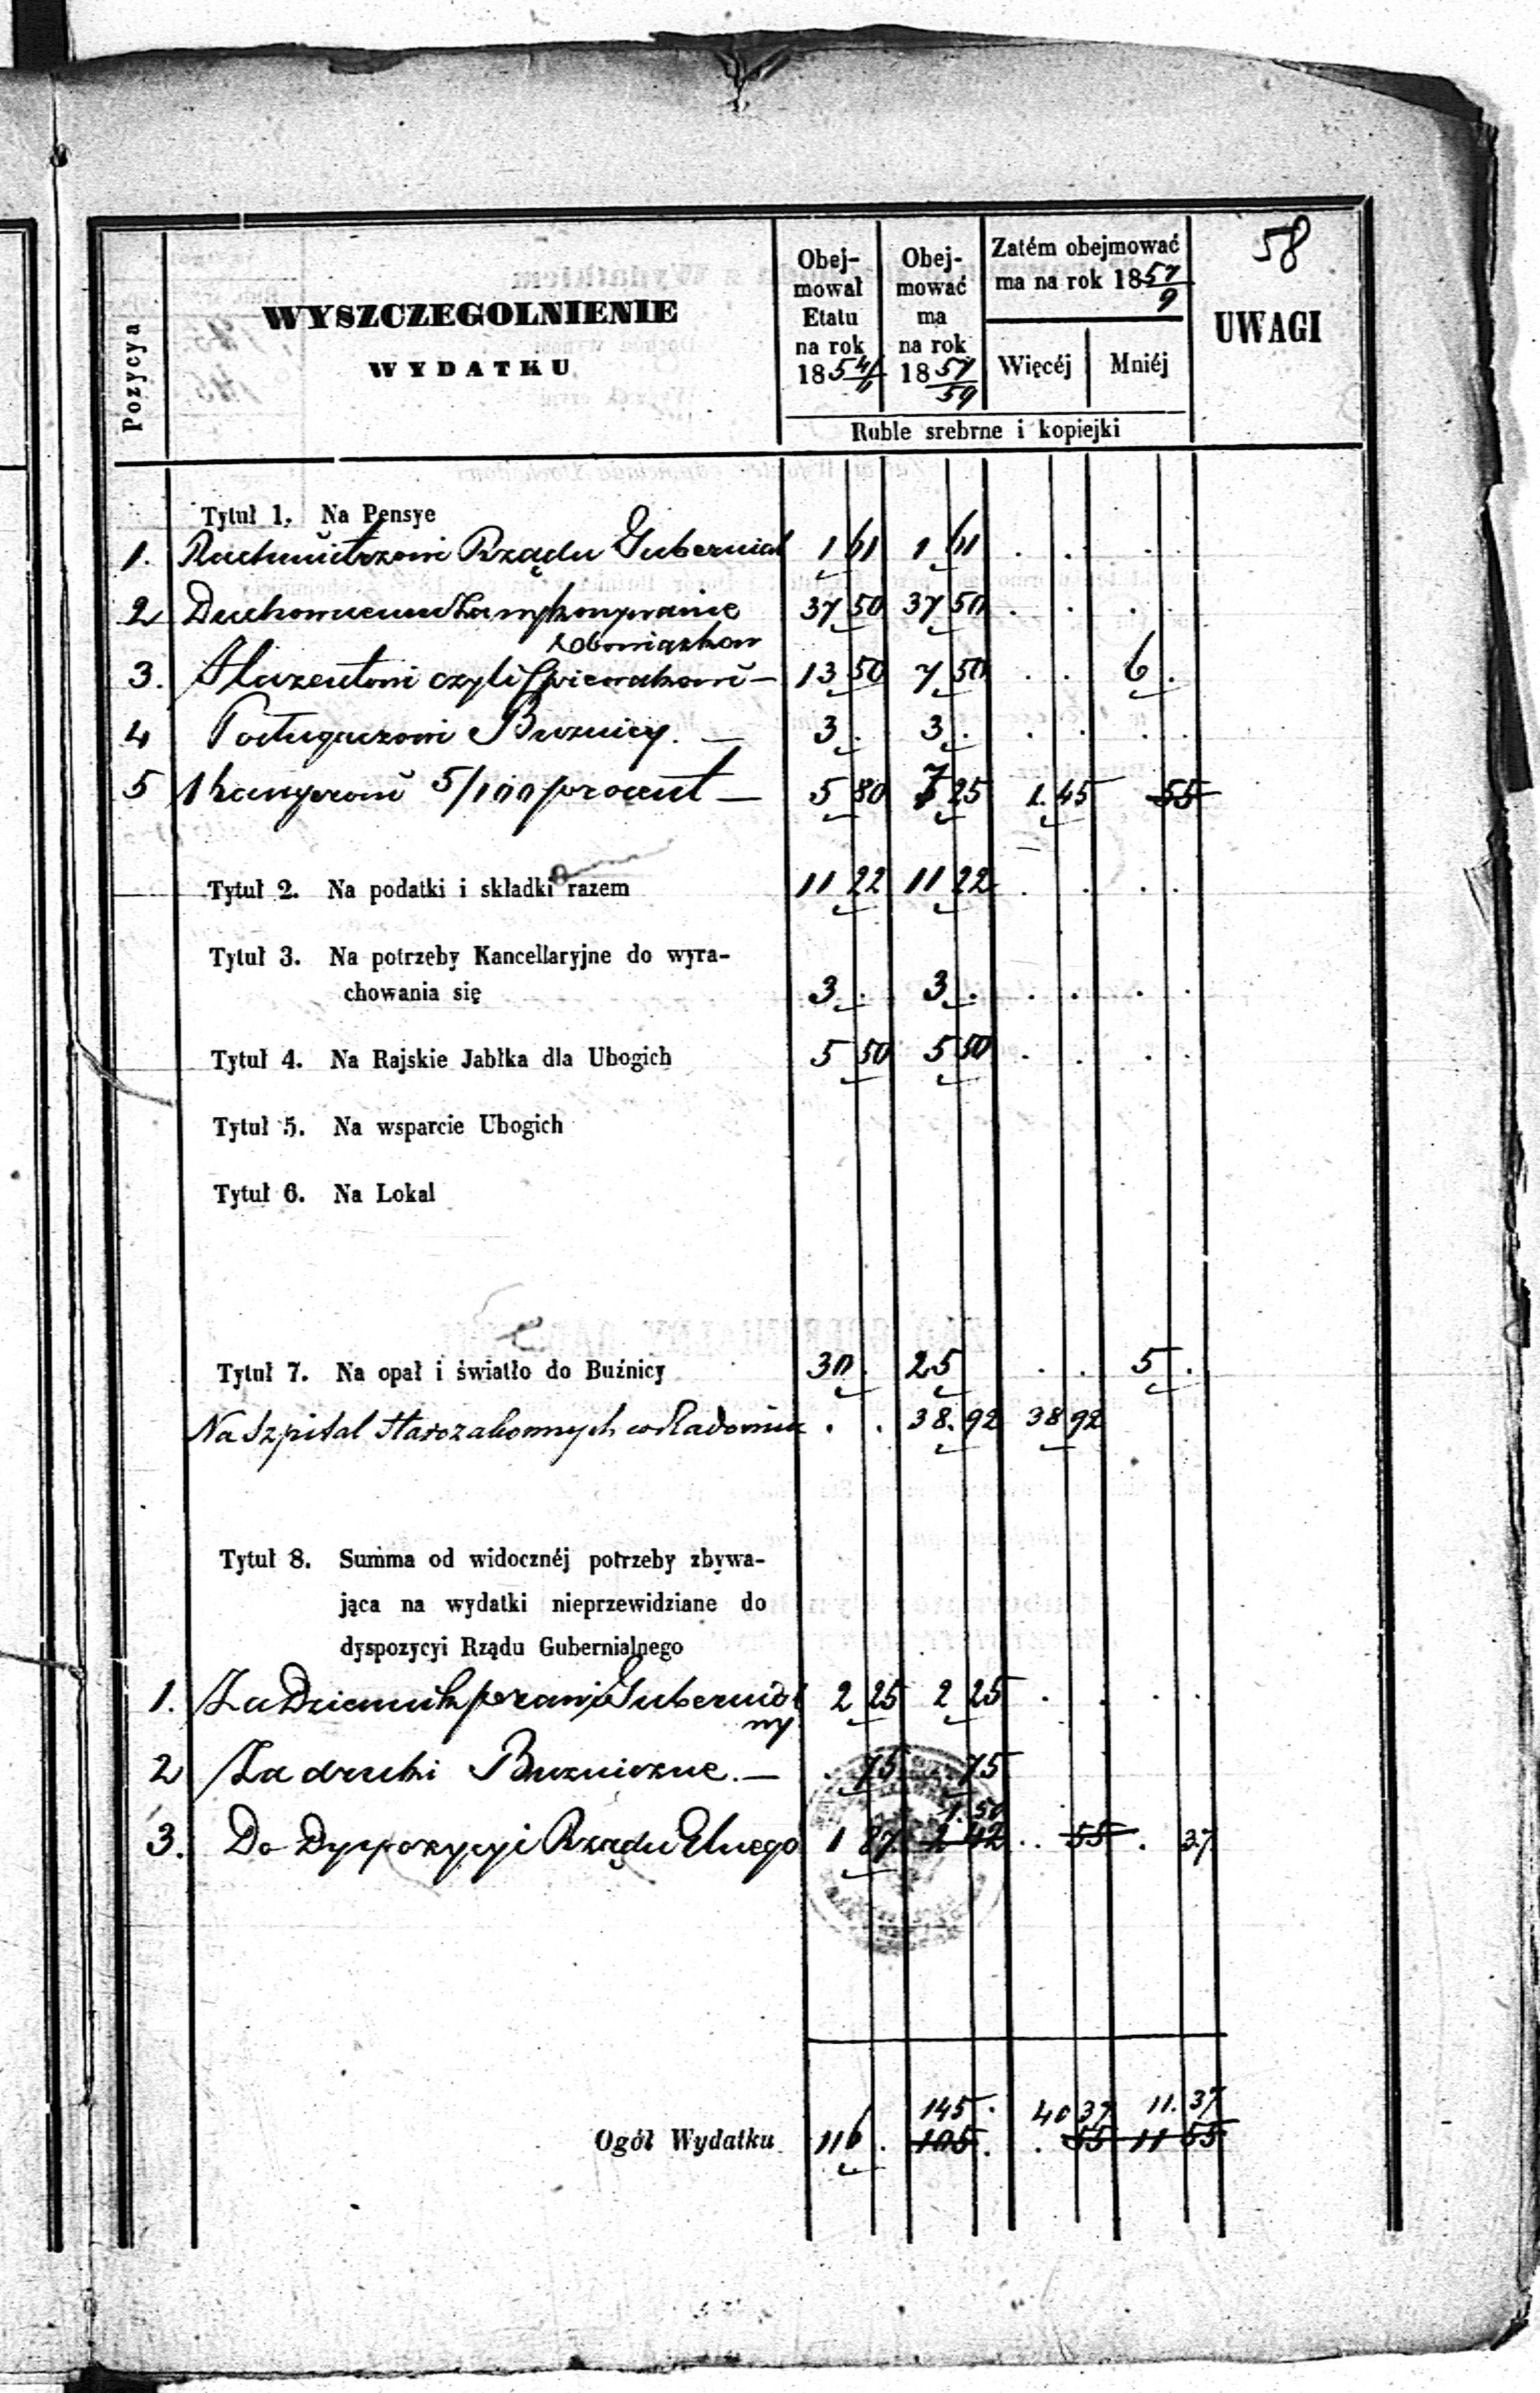 58
Pozycya
WYSZCZEGOLNIENIE
WYDATKU
Obej-
mował
Etatu
na rok
18 54/6
Obej-
mować
ma
na rok
18 57/59
Zatém obejmować
ma na rok 18 57/9
Więcéj Mniéj
UWAGI
Ruble srebrne i kopiejki
Tytuł 1. Na Pensye
1. Rachmistrzowi Rządu Gubernial 1 61 1 61 . . . .
2 Duchownemu za wykonywanie 37 50 37 50 . . . .
obowiązków
3. czyli Śpiewakowi — 13 50 7 50 . . 6 .
4 Posługaczowi Buznicy. — 3 . 3 . . . . .
5 5/100 procent — 5 80 7 25 1. 45 55
Tytuł 2. Na podatki i składki razem 11 22 11 22 . . . .
Tytuł 3. Na potrzeby Kancellaryjne do wyra-
chowania się 3 . 3 . . . . .
Tytuł 4. Na Rajskie Jabłka dla Ubogich 5 50 5 50 . . . .
Tytuł 5. Na wsparcie Ubogich
Tytuł 6. Na Lokal
Tytuł 7. Na opał i światło do Buźnicy 30 . 25 . . 5 .
Na Szpital Starozakonnych w Radomiu . . 38. 92 38 92
Tytuł 8. Summa od widocznéj potrzeby zbywa-
jąca na wydatki nieprzewidziane do
dyspozycyi Rządu Gubernialnego
1. Za Dziennik praw i Gubernial 2 25 2 25 . . . .
ny
2 Za druki Buzniczne. — . 75 . 75
1. 50
3. Do Dyspozycyi Rządu Glnego 1 87 2 42 . . 55 . 37
145 . 40 37 11. 37
Ogół Wydatku 116 . 105 . . 55 11 55